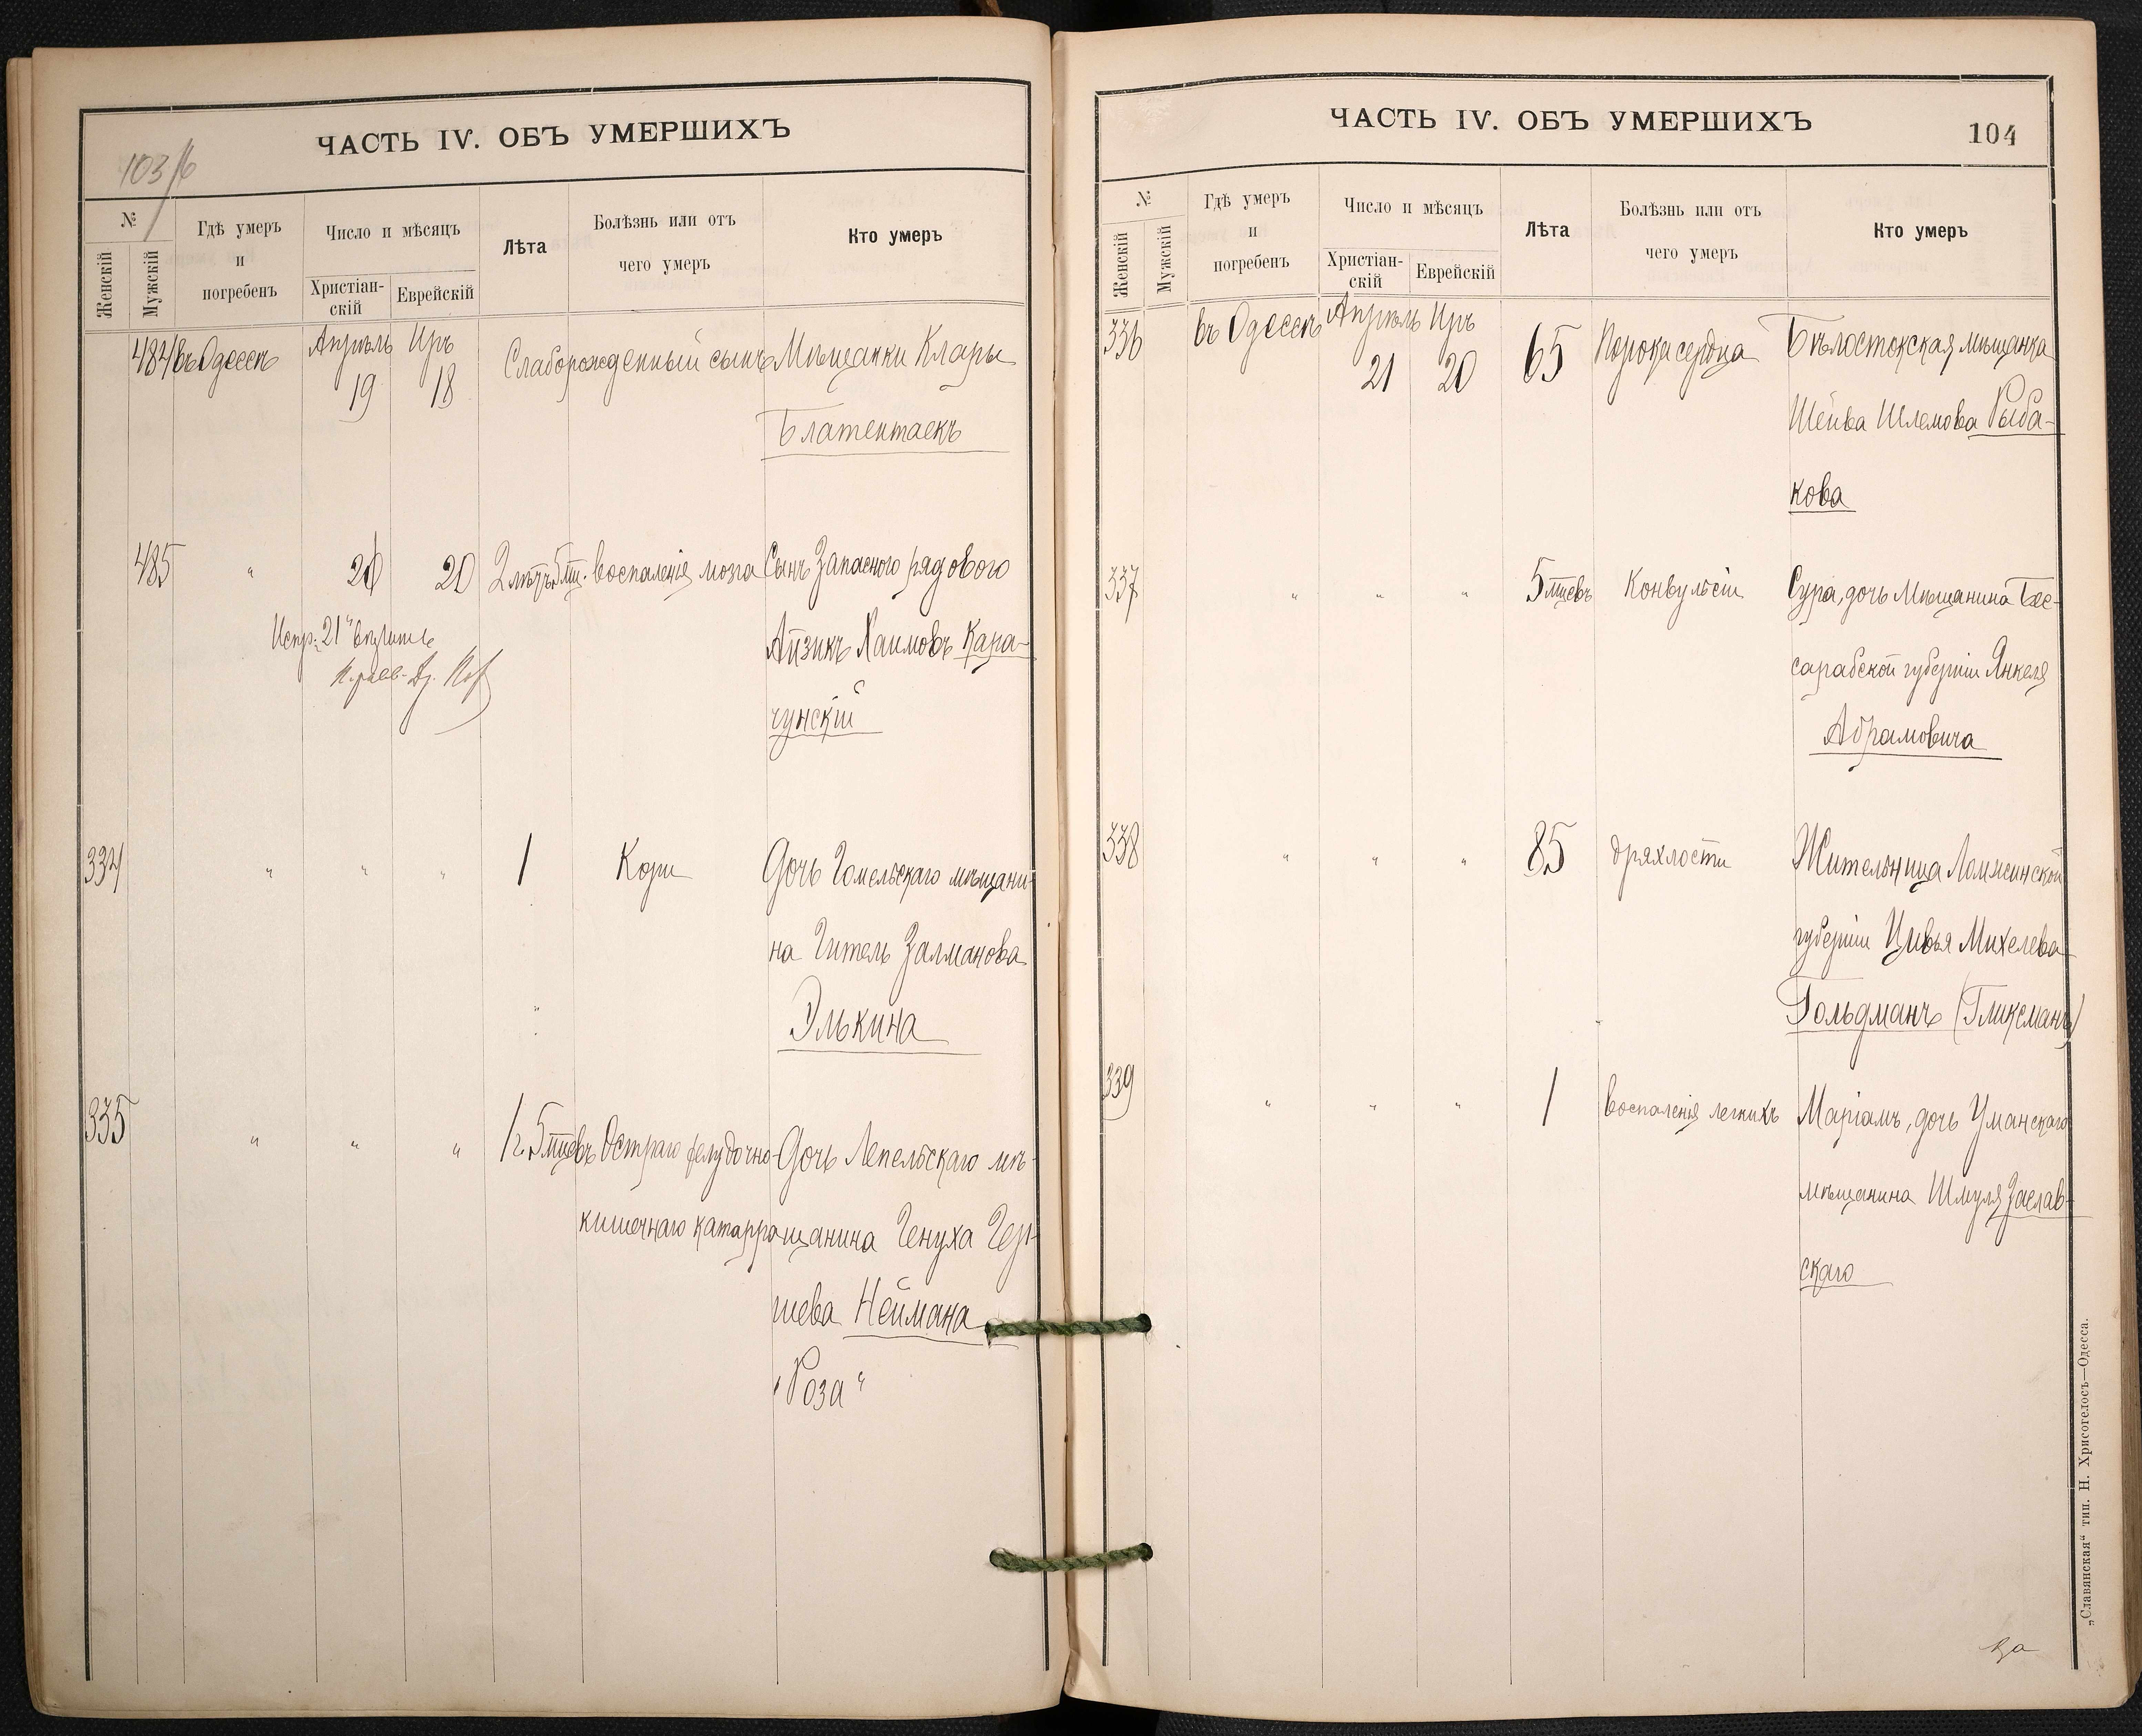 ЧАСТЬ IV. ОБЪ УМЕРШИХЪ
103/б
№
Женскій
Мужскій
Гдѣ умеръ
и
погребенъ
Число и мѣсяцъ
Христіан-
скій
Еврейскій
Лѣта
Болѣзнь или отъ
чего умеръ
Кто умеръ
484 въ Одессѣ Апрѣль Иръ Слаборожденный сынъ Мѣщанки Клары
19 18
Блатентаекъ
485 " 20 20 2 лѣтъ 5 мц. воспаленія мозга Сынъ Запаснаго рядового
Испр: "21" вѣрить
Айзикъ Хаимовъ Кара-
чунскій
334 " " " 1 Кори Дочь Гомельскаго мѣщани-
на Гитель Залманова
Элькина
335 " " " 1 г. 5 мцевъ Остраго желудочно- Дочь Лепельскаго мѣ-
кишечнаго катарра щанина Генуха Гер-
шева Неймана
"Роза"
ЧАСТЬ IV. ОБЪ УМЕРШИХЪ
104
№
Женскій
Мужскій
Гдѣ умеръ
и
погребенъ
Число и мѣсяцъ
Христіан-
скій
Еврейскій
Лѣта
Болѣзнь или отъ
чего умеръ
Кто умеръ
336 въ Одессѣ Апрѣль Иръ 65 Порока сердца Бѣлостокская мѣщанка
21 20
Шейва Шлемова Рыба-
кова
337 " " " 5 мцевъ Конвульсіи Сура, дочь Мѣщанина Бес-
сарабской губерніи Янкеля
Абрамовича
338 " " " 85 дряхлости Жительница Ломжинской
губерніи Цивья Михелева
Гольдманъ (Гликсманъ)
339 " " " 1 воспаленія легкихъ Маріамъ, дочь Уманскаго
мѣщанина Шмуля Заслав-
скаго
„Славянская“ тип. Н. Хрисогелосъ—Одесса.